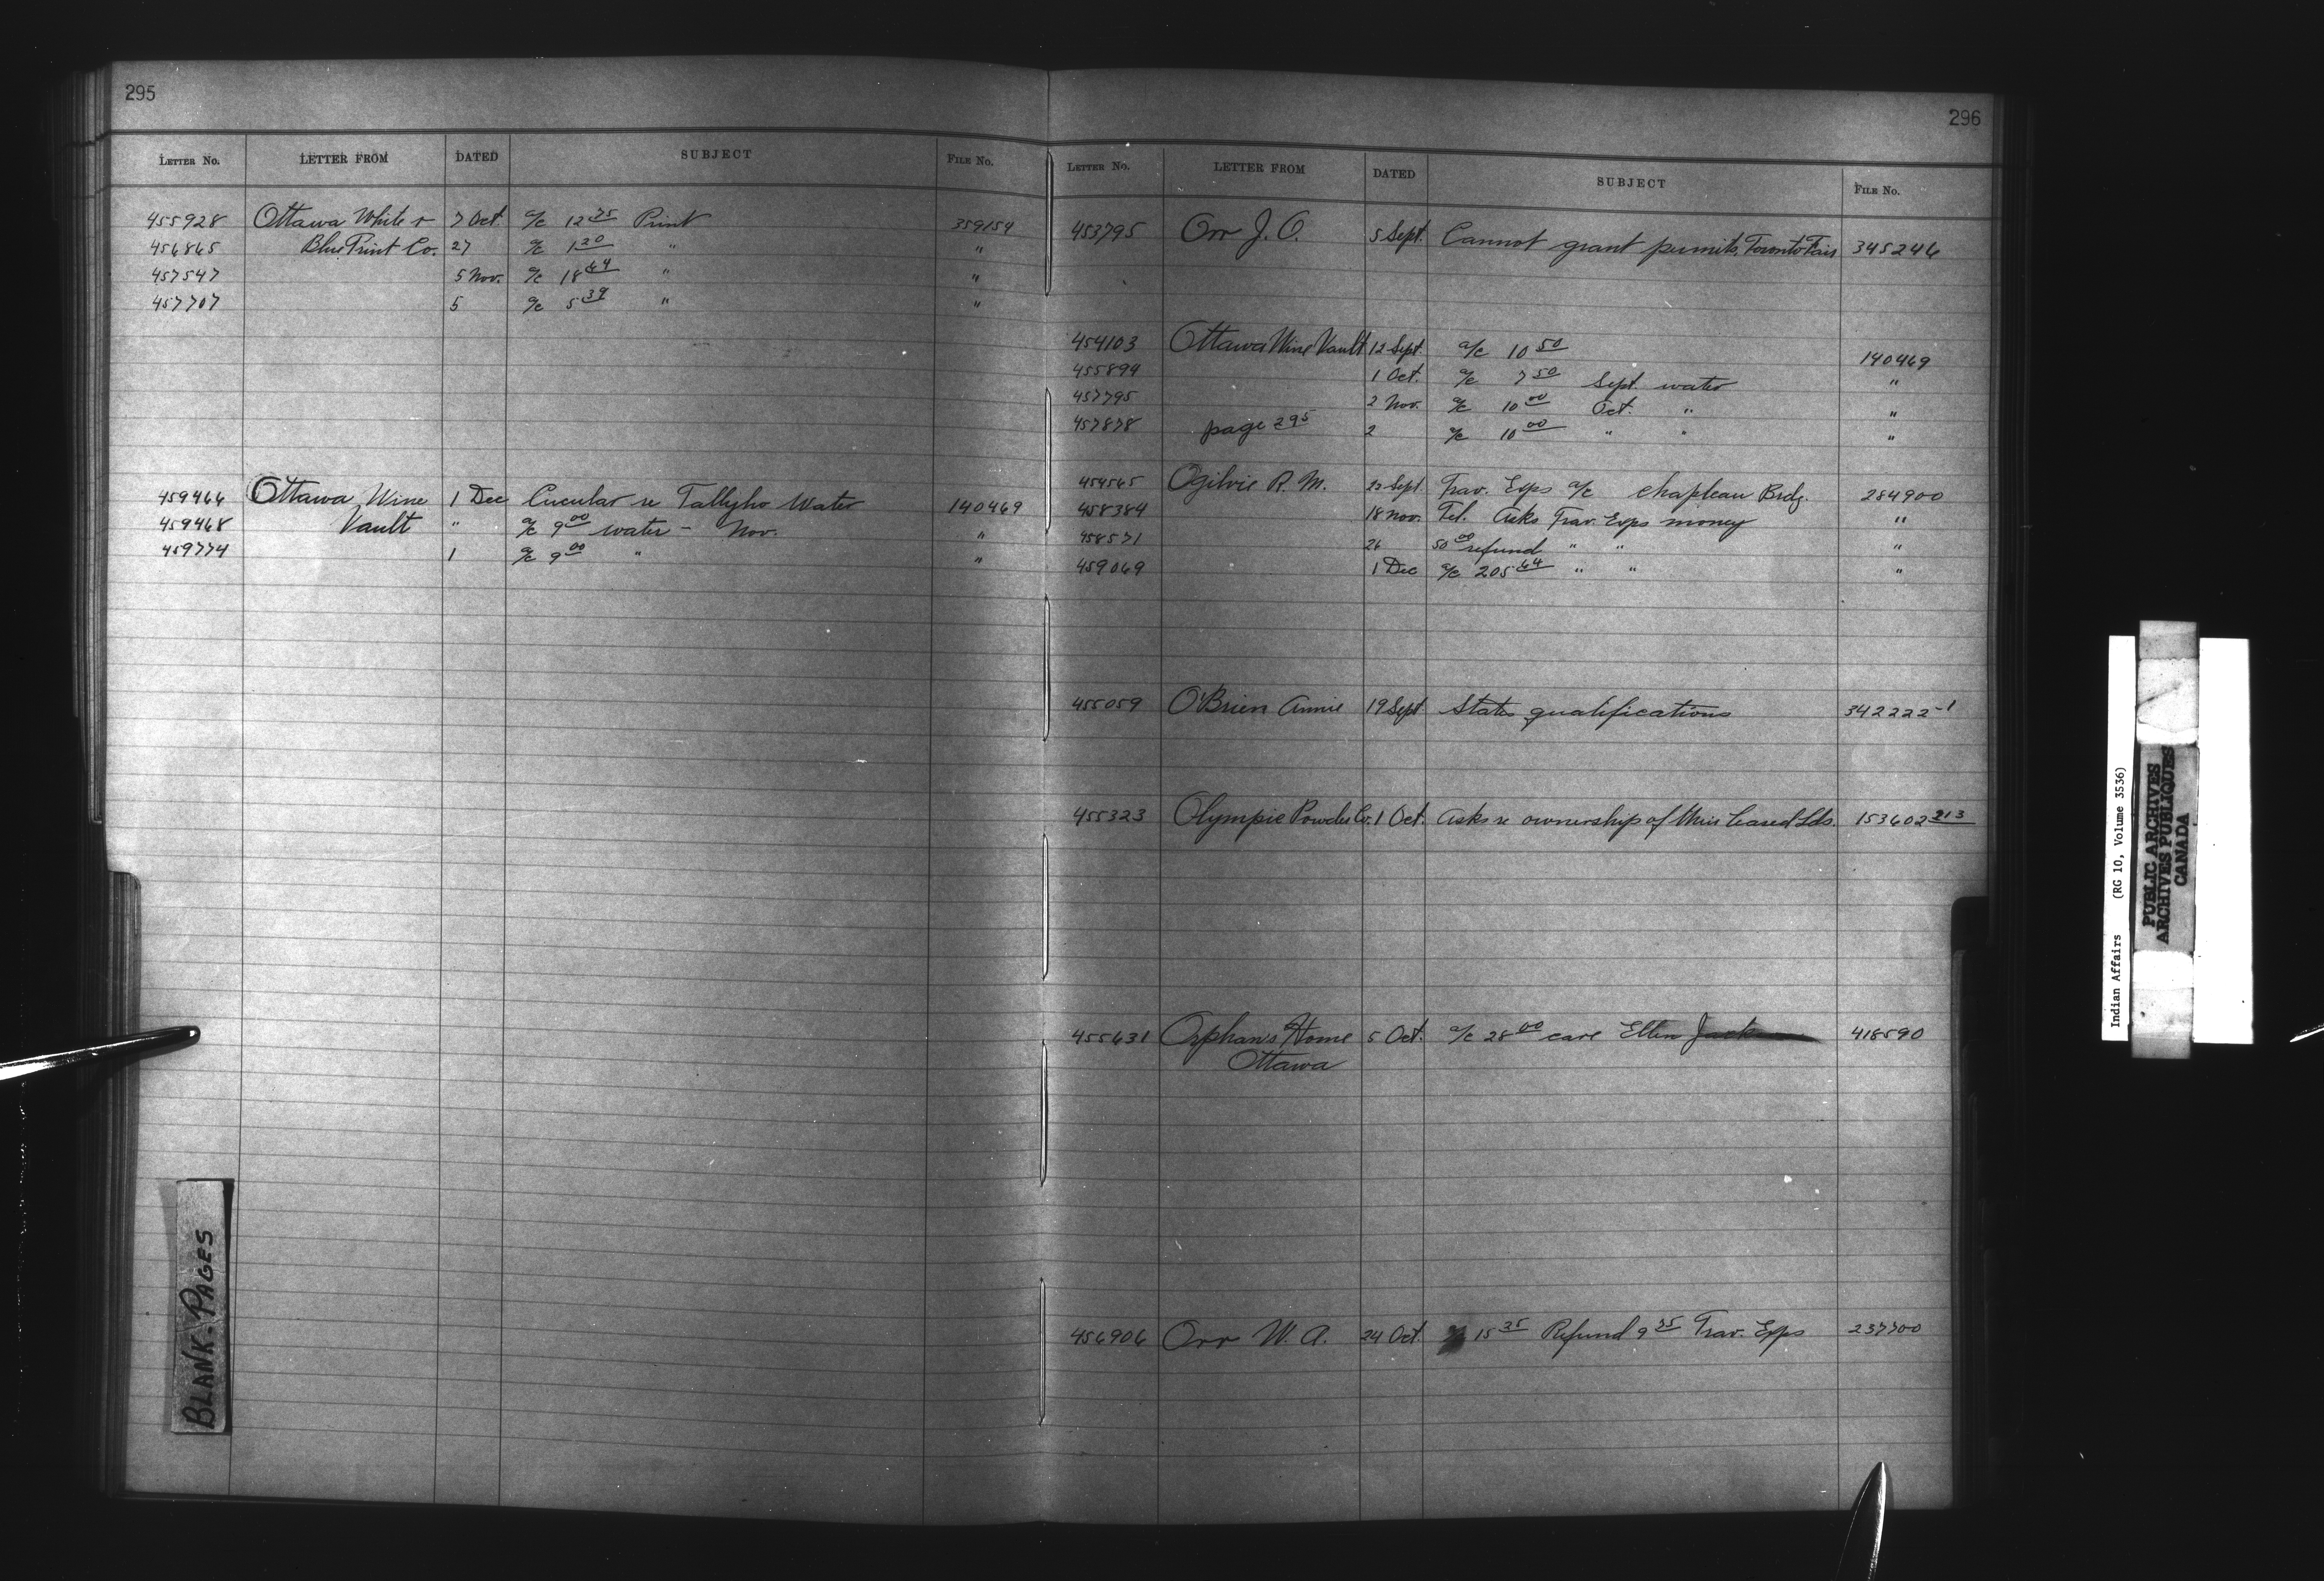 295
LETTER No. LETTER FROM DATED SUBJECT FILE No.
455928 Ottawa White & 7 Oct. a/c 12 75 Print 359154
456865 Blue Print Co. 27 a/c 1 20 " "
457547 5 Nov. a/c 18 64 " "
457707 5 a/c 5 39 " "
459466 Ottawa Wine 1 Dec Circular re Tallyho Water 140469
459468 Vault " a/c 9 00 water - Nov. "
459774 1 a/c 9 00 " "
BLANK. PAGES
296
LETTER No. LETTER FROM DATED SUBJECT FILE No.
453795 Orr J. O. 5 Sept. Cannot grant permits, Toronto Fair 345246
454103 Ottawa Wine Vault 12 Sept. a/c 10 50 140469
455894 1 Oct. a/c 7 50 Sept. water "
457795 2 Nov. a/c 10 00 Oct. " "
457878 page 295 2 a/c 10 00 " " "
454565 Ogilvie R. M. Sept Trav. Exps a/c Chapleau Brdg. 284900
458384 18 Nov. Tel. Asks Trav. Exps money "
458571 26 50 00 refund " " "
459069 1 Dec a/c 205 64 " " "
455059 O'Brien Annie 19 Sept States qualifications 342222-1
455323 Olympic Powder Co. 1 Oct. Asks re ownership of their leased Lds. 153602 213
455631 Orphans Home 5 Oct. a/c 28 00 care Ellen Jack 418590
Ottawa
456906 Orr W. A. 24 Oct. 15 35 Refund 9 75 Trav. Exps 237700
Indian Affairs (RG 10, Volume 3536)
PUBLIC ARCHIVES
ARCHIVES PUBLIQUES
CANADA